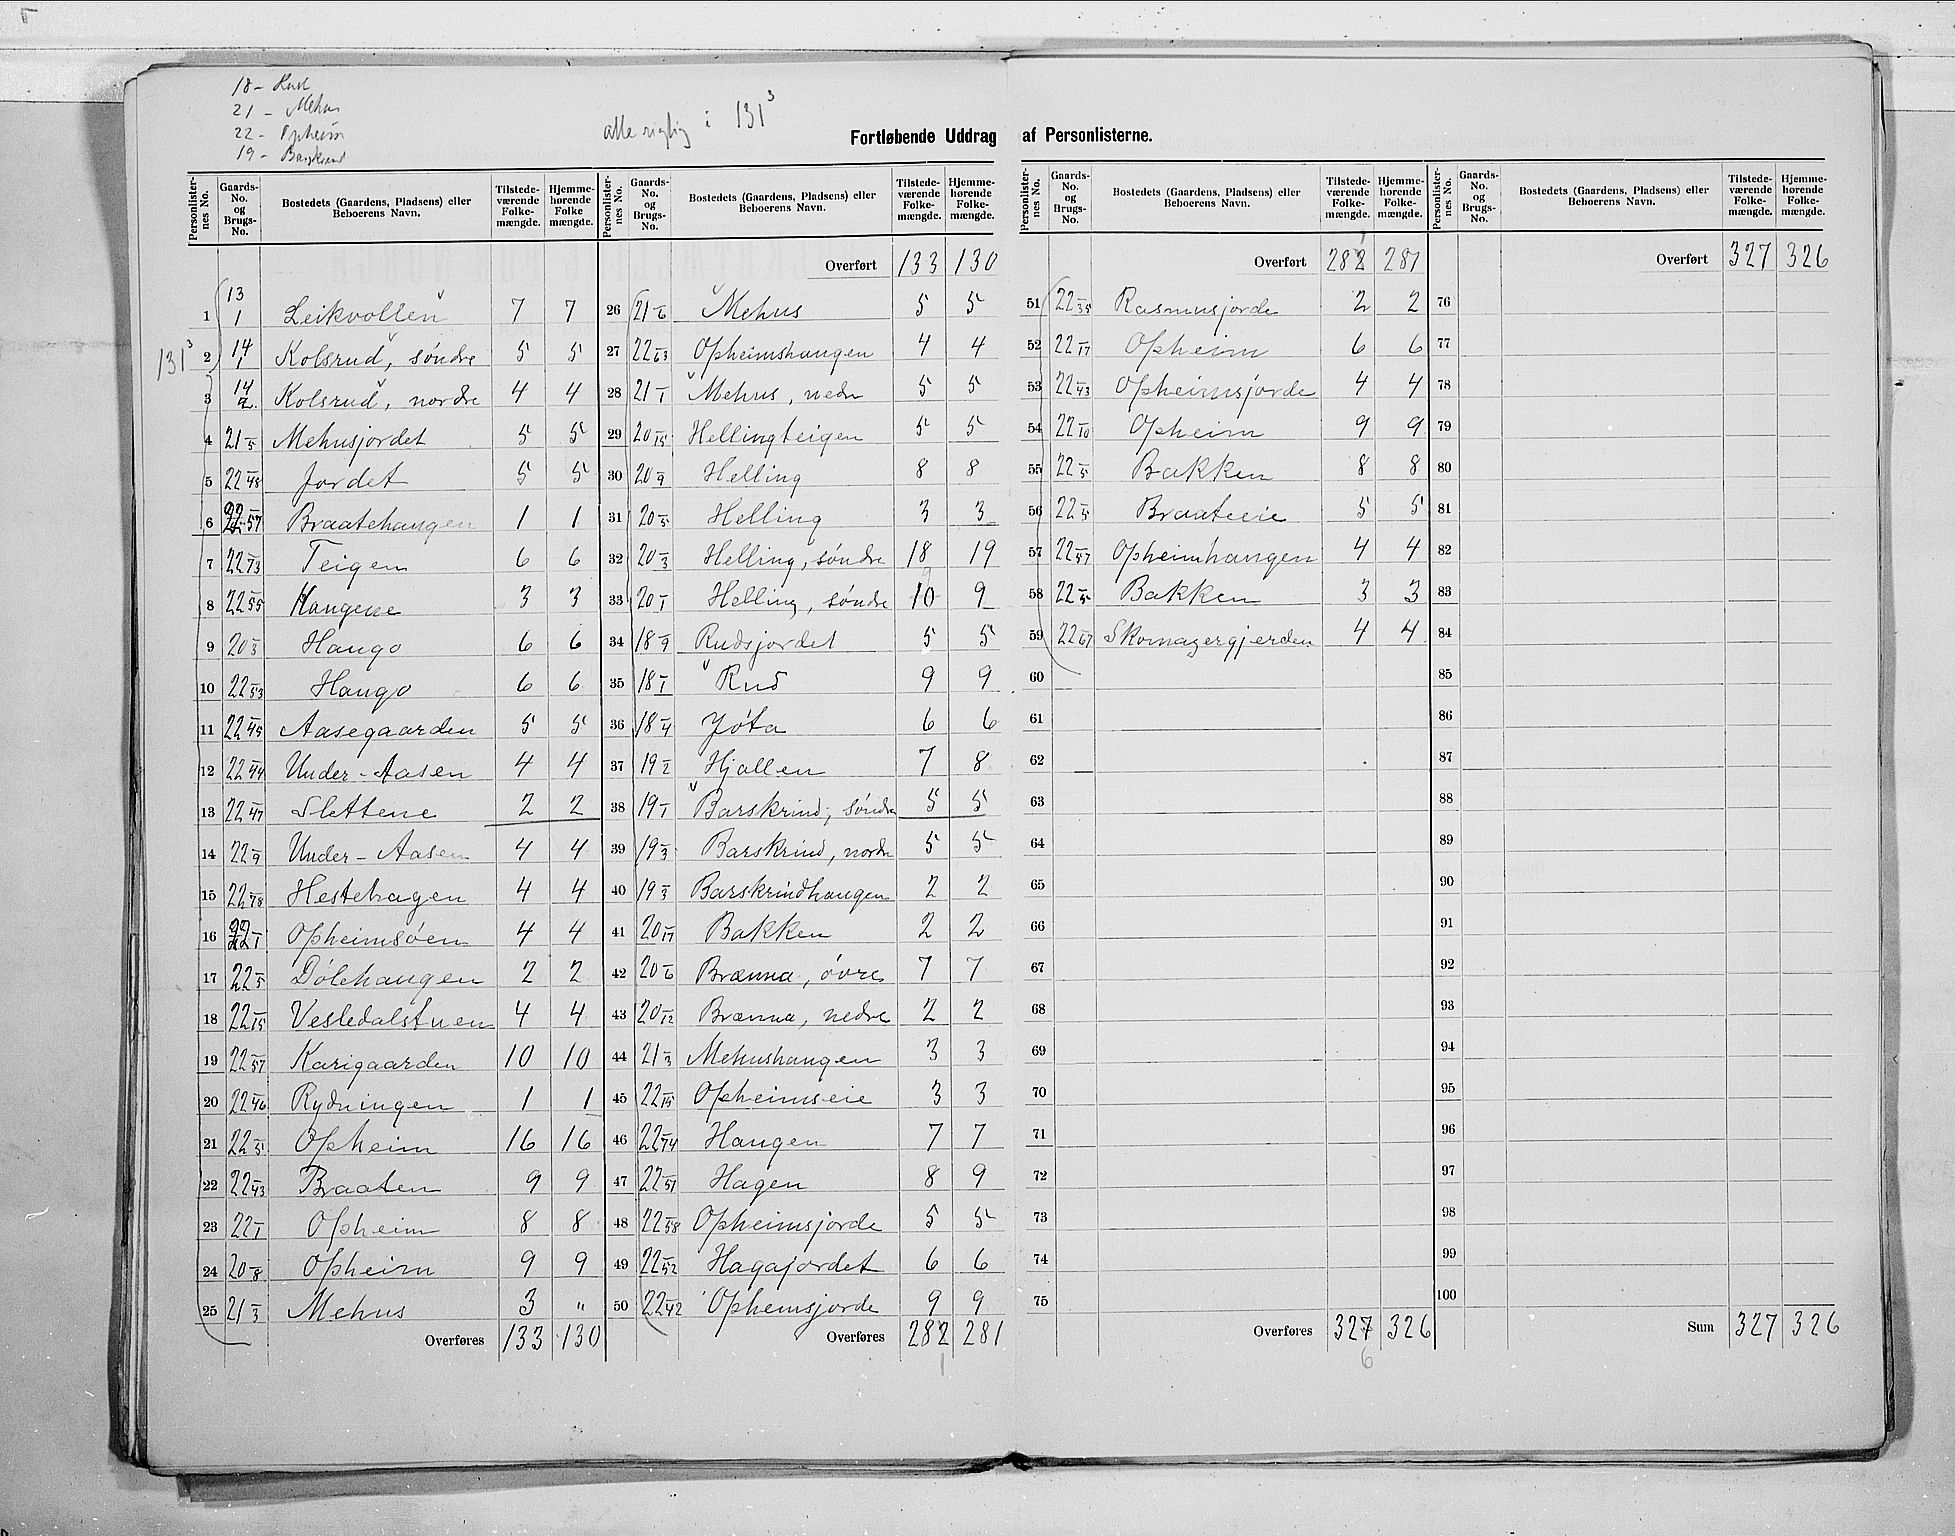 18 - Rud
21 - Mehus
22 - Opheim
19 - Barskrind
alle rigtig i 131³
Fortløbende Uddrag af Personlisterne.
Personlister-nes No. Gaards-No. og Brugs-No. Bostedets (Gaardens, Pladsens) eller Beboerens Navn. Tilstede-værende Folke-mængde. Hjemme-hørende Folke mængde.
131³
1 13/1 Leikvollen 7 7
2 14/1 Kolsrud, søndre 5 5
3 14/2 Kolsrud, nordre 4 4
4 21/5 Mehusjordet 5 5
5 22/48 Jordet 5 5
6 22/57 Braatehaugen 1 1
7 22/73 Teigen 6 6
8 22/55 Haugene 3 3
9 20/3 Haugo 6 6
10 22/53 Haugo 6 6
11 22/45 Aasegaarden 5 5
12 22/44 Under-Aasen 4 4
13 22/47 Slettene 2 2
14 22/9 Under-Aasen 4 4
15 22/78 Hestehagen 4 4
16 22/1 Opheimsøen 4 4
17 22/5 Dølehaugen 2 2
18 22/15 Vesledalstuen 4 4
19 22/57 Karigaarden 10 10
20 22/46 Rydningen 1 1
21 22/5 Opheim 16 16
22 22/43 Braaten 9 9
23 22/1 Opheim 8 8
24 20/8 Opheim 9 9
25 21/3 Mehus 3 "
Overføres 133 130
Personlister-nes No. Gaards-No. og Brugs-No. Bostedets (Gaardens, Pladsens) eller Beboerens Navn. Tilstede-værende Folke-mængde. Hjemme-hørende Folke-mængde.
Overført 133 130
26 21/6 Mehus 5 5
27 22/63 Opheimshaugen 4 4
28 21/1 Mehus, nedre 5 5
29 20/15 Hellingteigen 5 5
30 20/9 Helling 8 8
31 20/5 Helling 3 3
32 20/3 Helling, søndre 18 19
33 20/1 Helling, søndre 10 9 9
34 18/9 Rudsjordet 5 5
35 18/1 Rud 9 9
36 18/4 Jøta 6 6
37 19/2 Hjallen 7 8
38 19/1 Barskrind, søndre 5 5
39 19/3 Barskrind, nordre 5 5
40 19/3 Barskrindhaugen 2 2
41 20/17 Bakken 2 2
42 20/6 Brænna, övre 7 7
43 20/12 Brænna, nedre 2 2
44 21/3 Mehushaugen 3 3
45 22/15 Opheimseie 3 3
46 22/74 Haugen 7 7
47 22/51 Hagen 8 9
48 22/58 Opheimsjorde 5 5
49 22/52 Hagajordet 6 6
50 22/42 Ophemsjorde 9 9
Overføres 282 281
1
Personlister-nes No. Gaards-No. og Brugs-No. Bostedets (Gaardens, Pladsens) eller Beboerens Navn. Tilstede-værende Folke-mængde. Hjemme-hørende Folke-mængde.
Overført 282 281
51 22/35 Rasmusjorde 2 2
52 22/17 Opheim 6 6
53 22/43 Opheimsjorde 4 4
54 22/10 Opheim 9 9
55 22/5 Bakken 8 8
56 22/5 Braateeie 5 5
57 22/57 Opheimhaugen 4 4
58 22/5 Bakken 3 3
59 22/67 Skomagergjerden 4 4
60
61
62
63
64
65
66
67
68
69
70
71
72
73
74
75
Overføres 327 326
6
Personlister-nes No. Gaards-No. og Brugs-No. Bostedets (Gaardens, Pladsens) eller Beboerens Navn. Tilstede-værende Folke-mængde. Hjemme-hørende Folke-mængde.
Overført 327 326
76
77
78
79
80
81
82
83
84
85
86
87
88
89
90
91
92
93
94
95
96
97
98
99
100
Sum 327 326